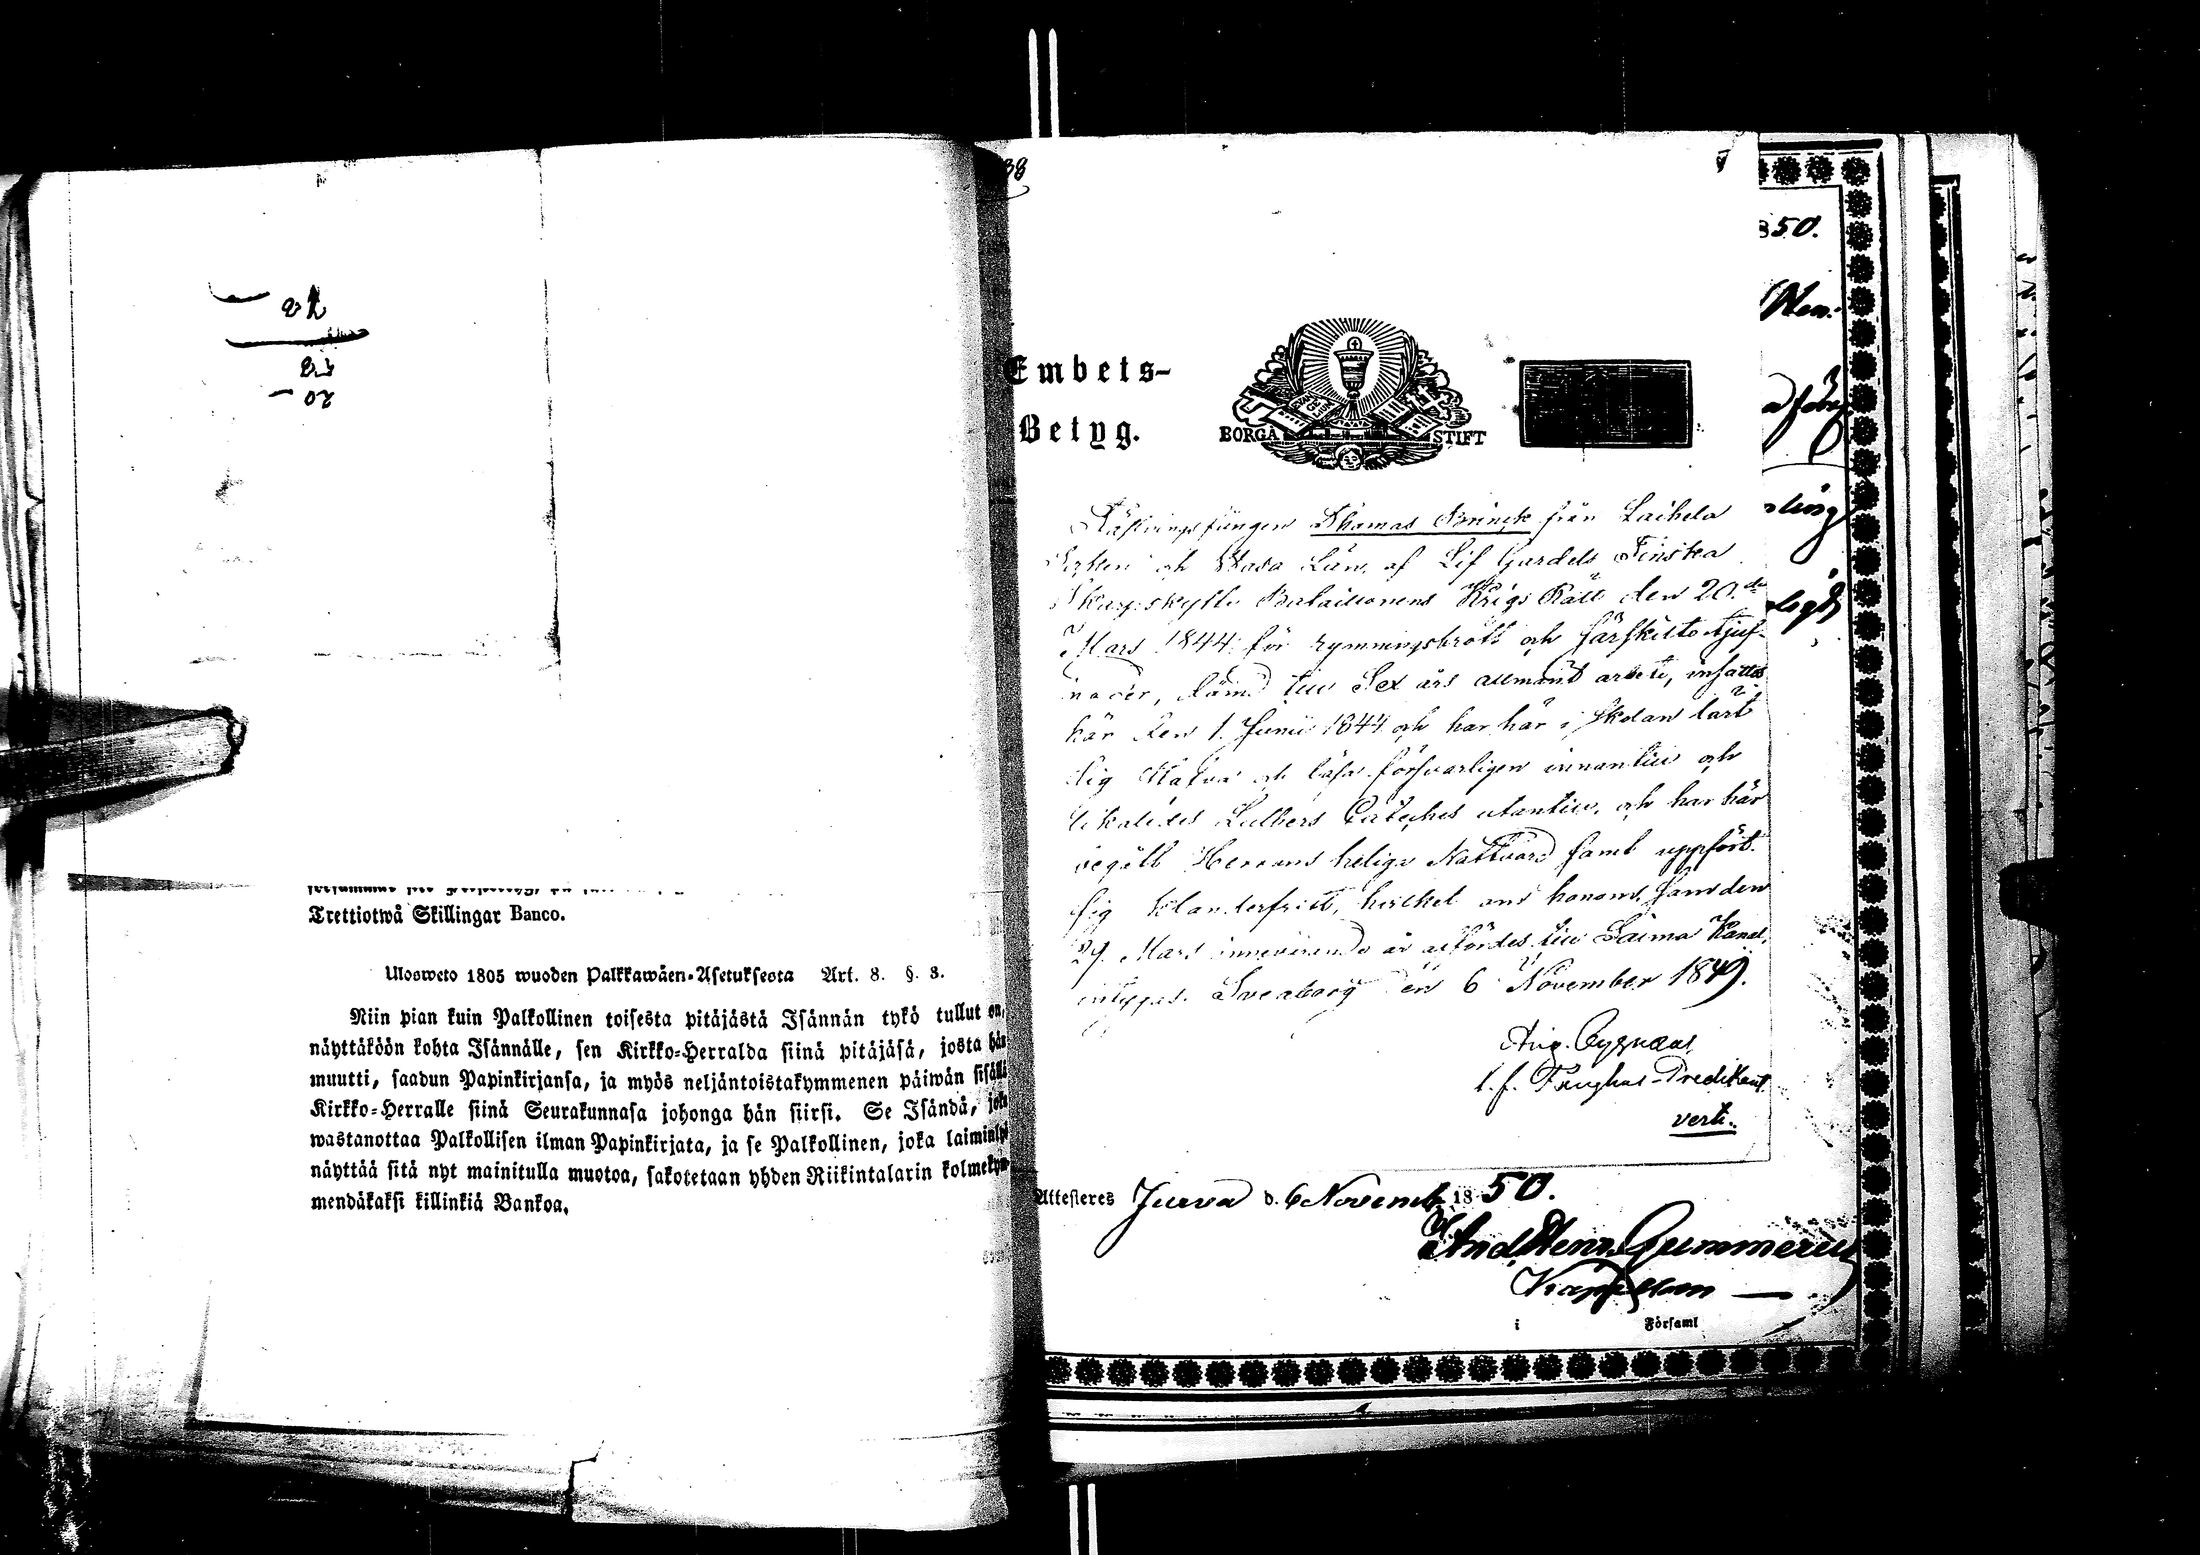 20 -
Trettiotwå Skillingar Banco.
Ulosweto 1805 wuoden Palkkawäen-Asetuksesta Art. 8. §. 3.
Niin pian kuin Palkollinen toisesta pitäjästä Isännän tykö tullut on,
näyttäköön kohta Isännälle, sen Kirkko-Herralda siinä pitäjäsä, josta hän
muutti, saadun Papinkirjansa, ja myös neljäntoistakymmenen päiwän sisällä
Kirkko-Herralle siinä Seurakunnasa johonga hän siirsi. Se Isändä, joka
wastanottaa Palkollisen ilman Papinkirjata, ja se Palkollinen, joka laiminlyö
näyttää sitä nyt mainitulla muotoa, sakotetaan yhden Riikintalarin kolmekym-
mendäkaksi killinkiä Bankoa.
38
Embets-
Betyg.
BORGÅ STIFT
Fästningsfången Thomas Brinck från Laihela
Socken och Wasa Län, af Lif Gardets Finska
Skarpskytte Bataillonens Krigs Rätt den 20.de
Mars 1844 för rymningsbrott och färskilte tjuf-
nader, dömd till Sex års allmänt arbete, insattes
här den 1. Junii 1844 och har här i skolan lärt
sig stafva och läsa försvarligen innantill och
likaledes Luthers Cateches utantill, och har här
begått Herrans heliga Nattvard samt uppfört
sig klanderfritt, hvilket om honom, som den
29 Mars innevarande år affördes till Saima Kanal,
intygas. Sveaborg den 6 November 1849.
Aug. Cygnæus,
t. f. Fånghus-Predikant
verte.
Attesteres Jurva d. 6 Novemb. 1850.
And. Henr. Gummerus
Kapellan
i Församl
850.